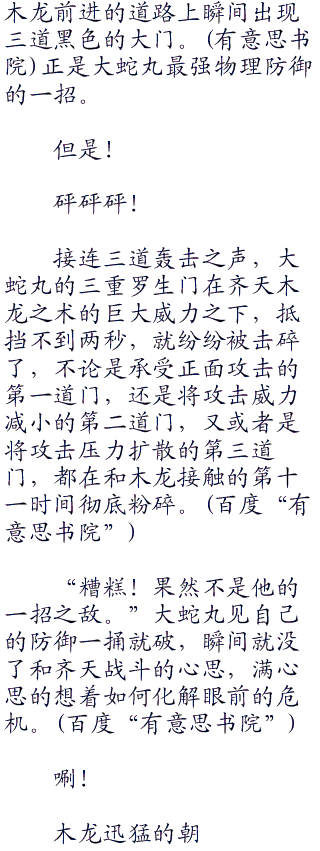 木龙前进的道路上瞬间出现
三道黑色的大门。(有意思书
院)正是大蛇丸最强物理防御
的一招。
但是！
砰砰砰！
接连三道轰击之声，大
蛇丸的三重罗生门在齐天木
龙之术的巨大威力之下，抵
挡不到两秒，就纷纷被击碎
了，不论是承受正面攻击的
第一道门，还是将攻击威力
减小的第二道门，又或者是
将攻击压力扩散的第三道
门，都在和木龙接触的第十
一时间彻底粉碎。(百度“有
意思书院”)
“糟糕！果然不是他的
一招之敌。”大蛇丸见自己
的防御一捅就破，瞬间就没
了和齐天战斗的心思，满心
思的想着如何化解眼前的危
机。(百度“有意思书院”)
唰！
木龙迅猛的朝